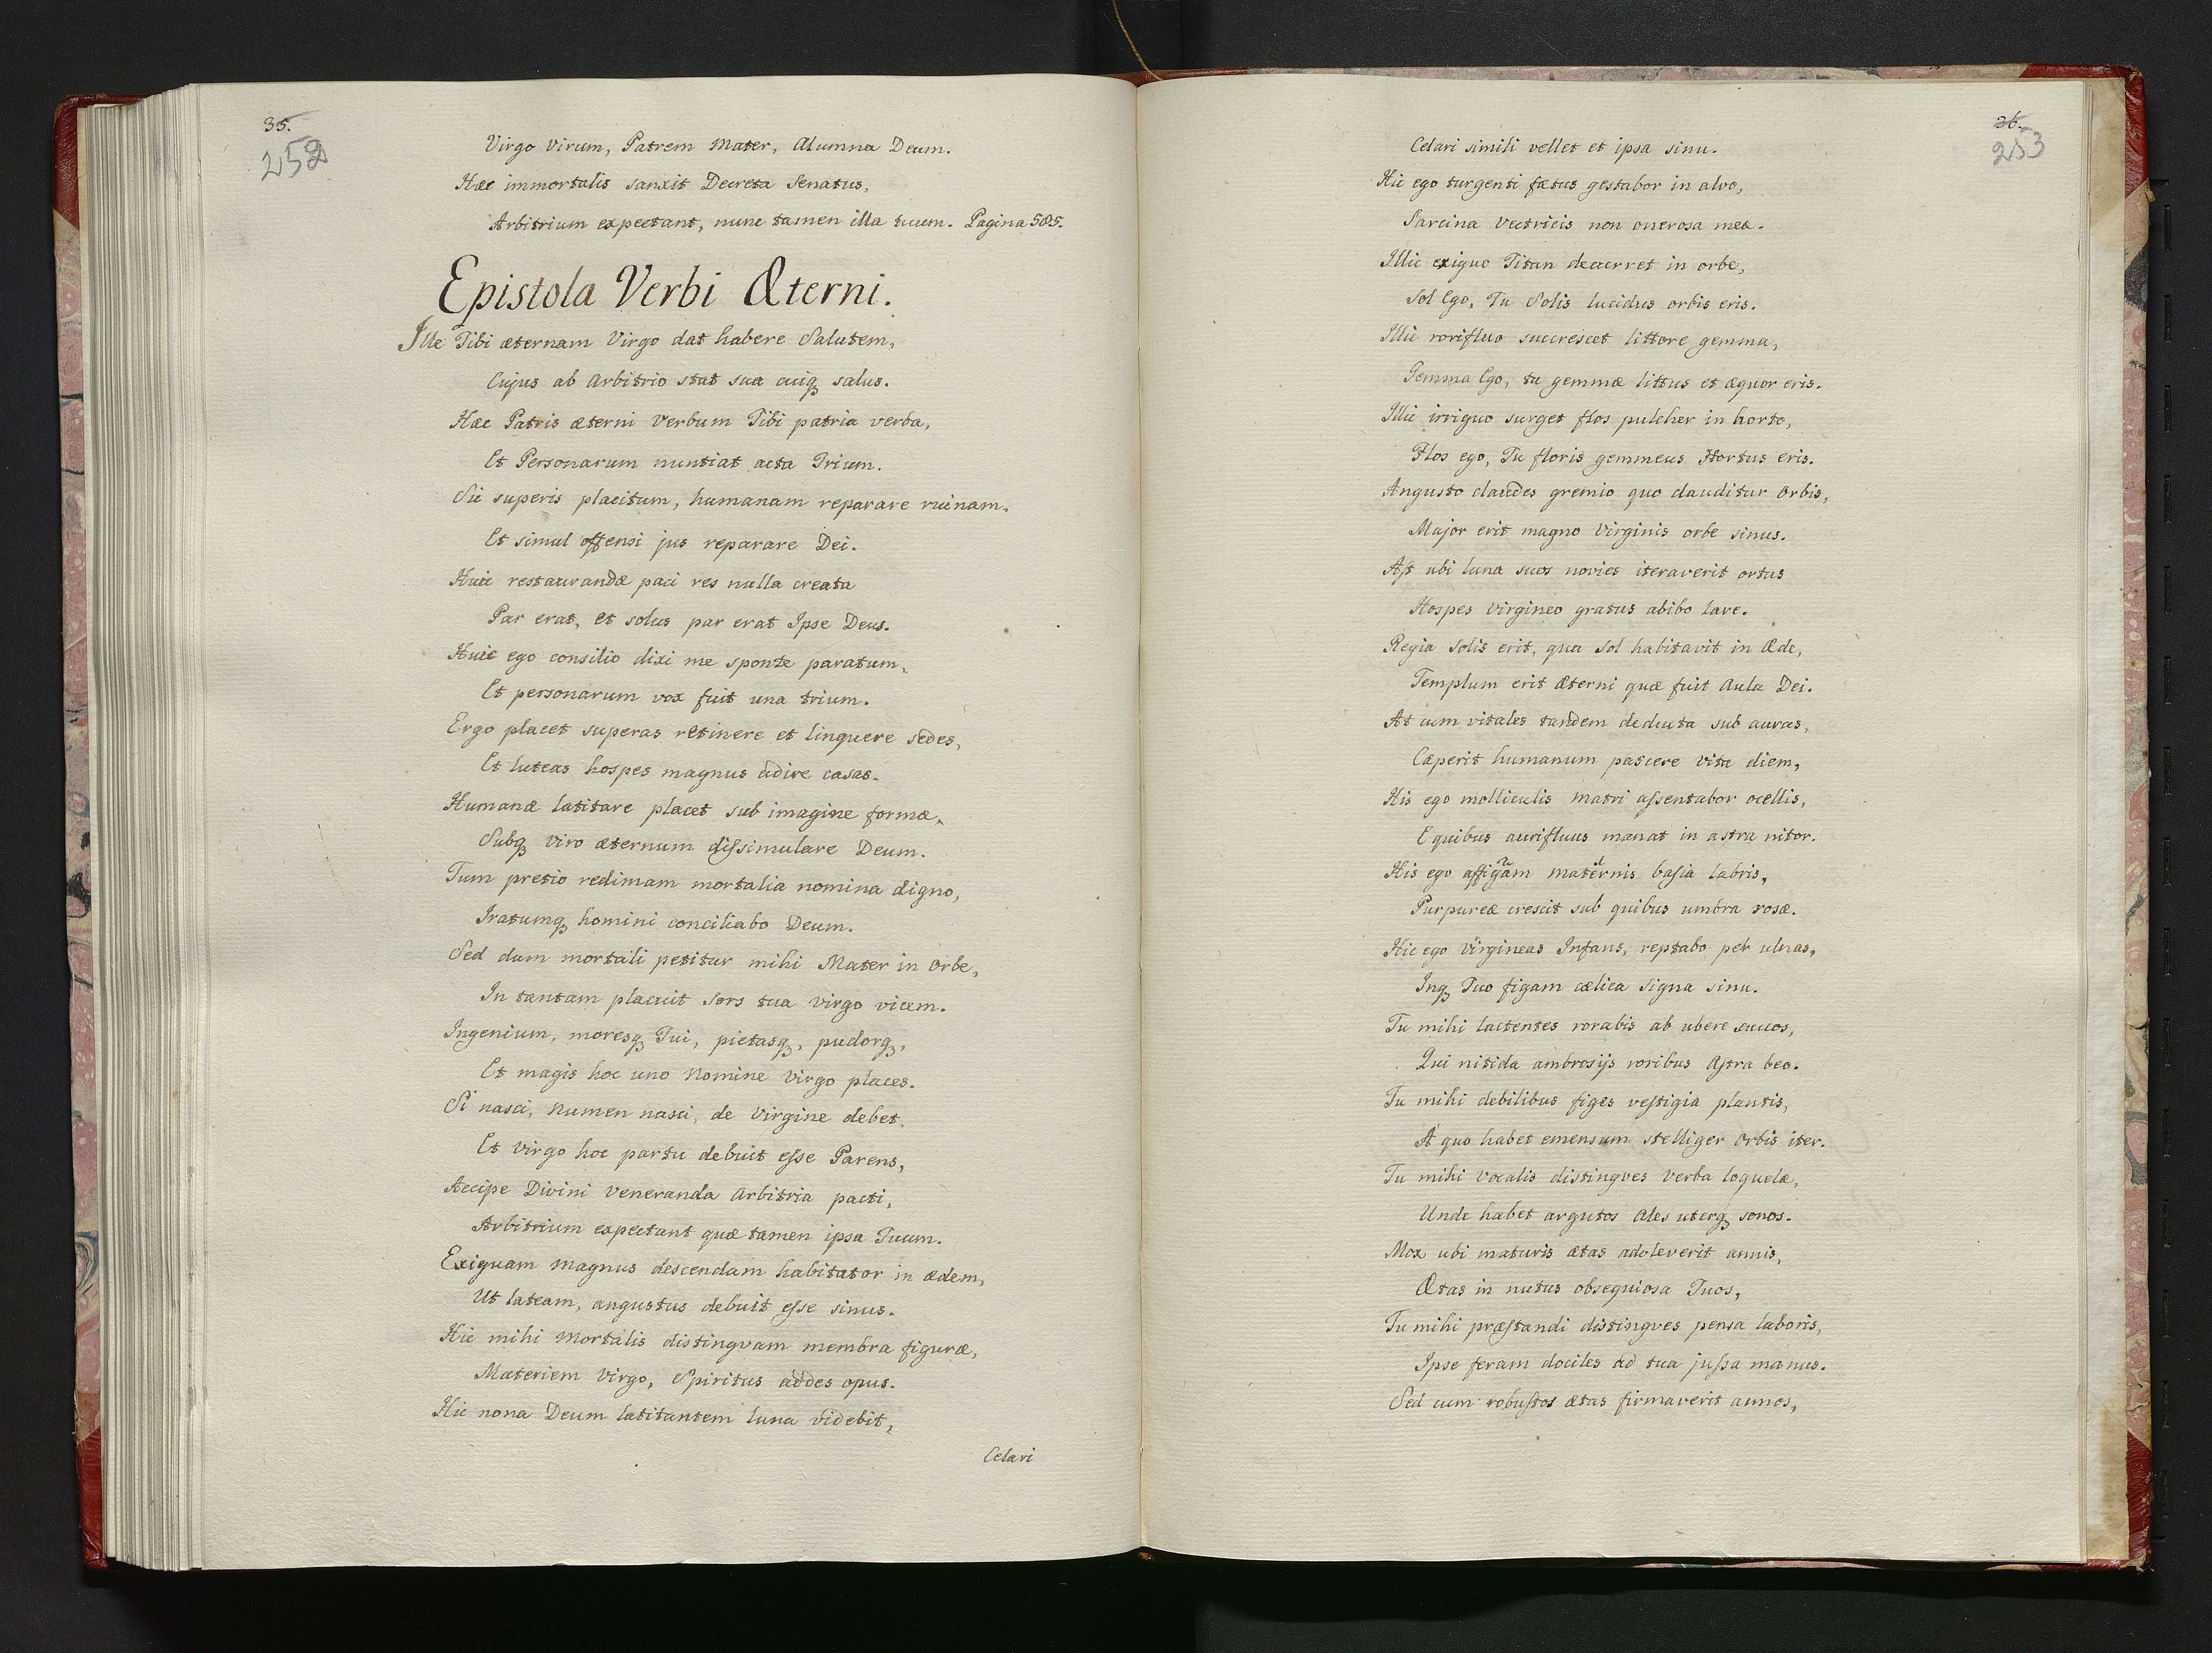 35.
252
Virgo Virum, Patrem Mater, Alumna Deum.
Hæc immortalis sanxit Decreta Senatus,
Arbitrium expectant, nunc tamen illa tuum. Pagina 585.
Epistola Verbi Æterni.
Ille Tibi æternam Virgo dat habere Salutem,
Cujus ab Arbitrio stat sua cuiq₃ salus.
Hæc Patris æterni Verbum Tibi patria verba,
Et Personarum nuntiat acta Trium.
Sic superis placitum, humanam reparare ruinam.
Et simul offensi jus reparare Dei.
Huic restaurandæ paci res nulla creata
Par erat, et solus par erat Ipse Deus.
Huic ego consilio dixi me sponte paratum,
Et personarum vox fuit una trium.
Ergo placet superas retinere et linquere sedes,
Et luteas hospes magnus adire casas.
Humanæ latitare placet sub imagine formæ,
Subq₃ Viro æternum dissimulare Deum.
Tum pretio redimam mortalia nomina digno,
Iratumq₃ homini conciliabo Deum.
Sed dum mortali petitur mihi Mater in Orbe,
In tantam placuit sors tua virgo vicem.
Ingenium, moresq₃ Tui, pietasq₃, pudorq₃,
Et magis hoc uno Nomine Virgo places.
Si nasci, Numen nasci, de Virgine debet,
Et Virgo hoc partu debuit esse Parens,
Accipe Divini Veneranda Arbitria pacti,
Arbitrium expectant quæ tamen ipsa Tuum.
Exiguam Magnus descendam habitator in ædem,
Ut lateam, angustus debuit esse sinus.
Hic mihi Mortalis distingvam membra figuræ,
Materiem Virgo, Spiritus addes opus.
Hic nona Deum latitantem luna videbit,
Celari
36.
253
Celari simili vellet et ipsa sinu.
Hic ego turgenti fætus gestabor in alvo,
Sarcina Vectricis non onerosa meæ.
Illic exiguo Titan decurret in orbe,
Sol Ego, Tu Solis lucidus orbis eris.
Illic rorifluo succrescet littore gemma,
Gemma Ego, tu gemmæ littus et æquor eris.
Illic irriguo surget flos pulcher in horto,
Flos ego, Tu floris gemmeus Hortus eris.
Angusto claudes gremio quo clauditur Orbis,
Major erit magno Virginis orbe sinus.
Ast ubi luna suos novies iteraverit ortus
Hospes Virgineo gratus abibo lare.
Regia Solis erit, qua Sol habitavit in Æde,
Templum erit Æterni quæ fuit Aula Dei.
At cum vitales tandem deducta sub auras,
Cæperit humanum pascere vita diem,
His ego molliculis Matri assentabor ocellis,
E quibus aurifluus manat in astra nitor.
His ego affigam maternis basia labris,
Purpureæ crescit sub quibus umbra rosæ.
Hic ego Virgineas Infans, reptabo per ulnas,
Inq₃ Tuo figam cælica signa sinu.
Tu mihi lactentes rorabis ab ubere succos,
Qui nitida ambrosijs roribus Astra beo.
Tu mihi debilibus figes vestigia plantis,
A quo habet emensum stelliger Orbis iter.
Tu mihi Vocalis distingves Verba loquelæ,
Unde habet argutos Ales uterq₃ sonos.
Mox ubi maturis ætas adoleverit annis,
Ætas in nutus obsequiosa Tuos,
Tu mihi præstandi distingves pensa laboris,
Ipse feram dociles ad tua jussa manus.
Sed cum robustos ætas firmaverit annos,